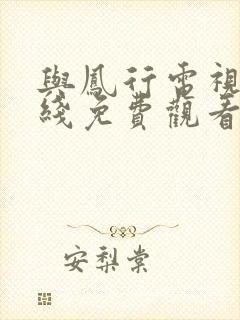 與鳳行電視
綫免費觀看
安梨棠